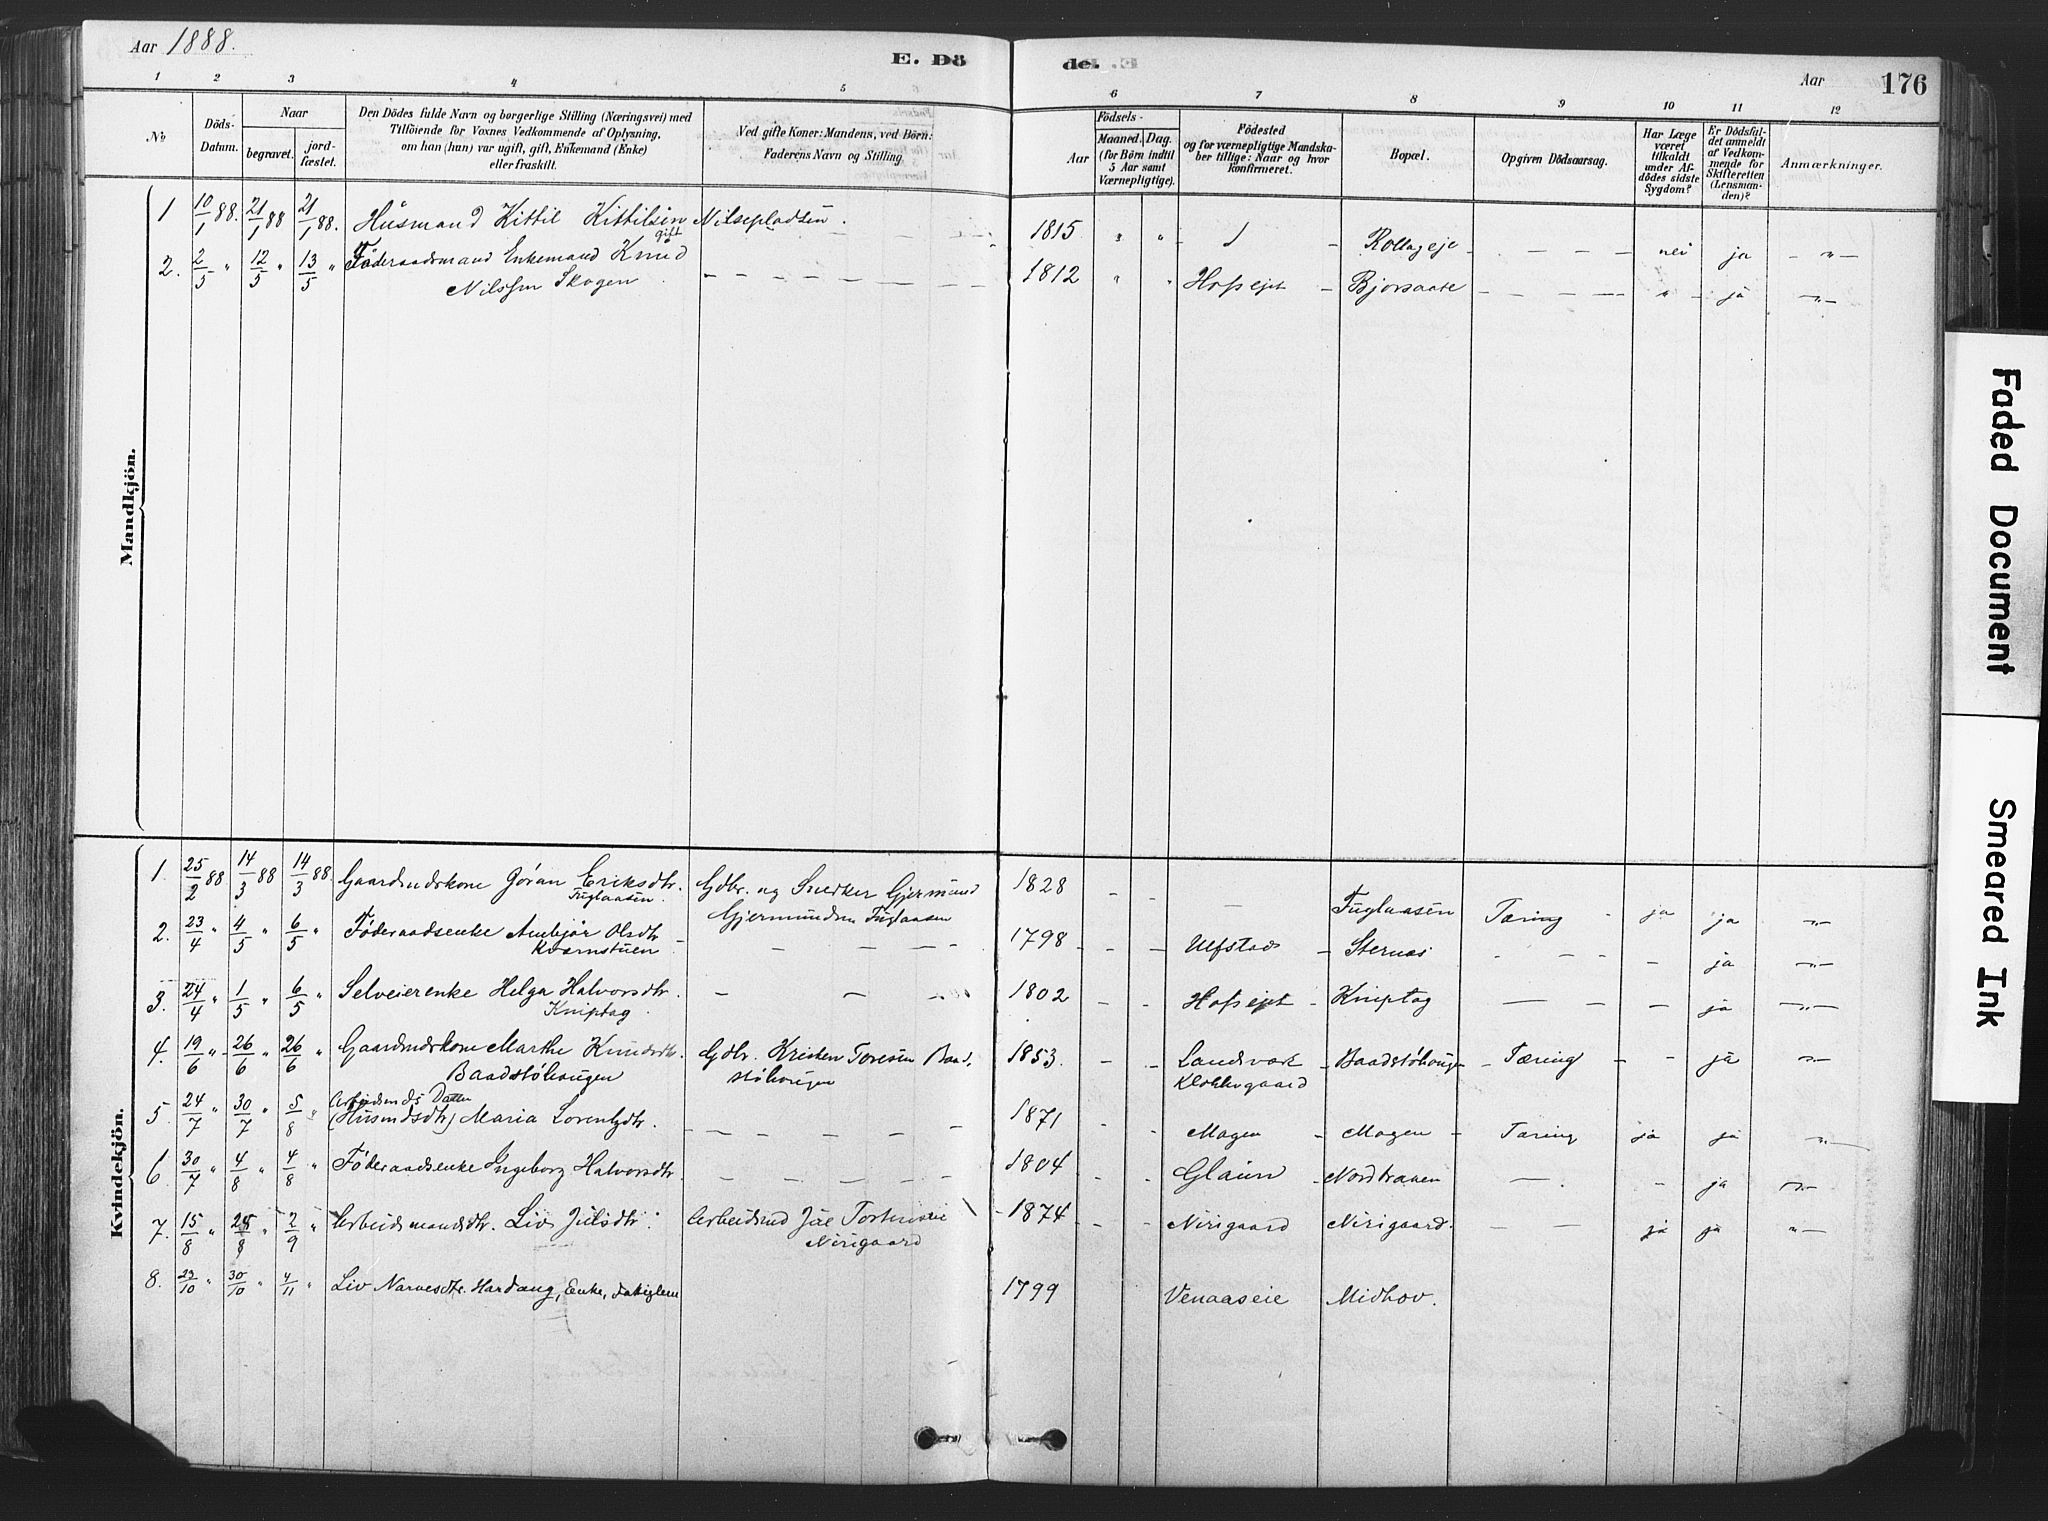 Aar 1888.
E. Dö
del.
Aar
176
1 2 3 4 5 6 7 8 9 10 11 12
No.
Döds-
Datum.
Naar
begravet.
jord-
fæstet.
Den Dödes fulde Navn og borgerlige Stilling (Næringsvei) med
Tilföiende for Voxnes Vedkommende af Oplysning,
om han (hun) var ugift, gift, Enkemand (Enke)
eller fraskilt.
Ved gifte Koner: Mandens, ved Börn:
Faderens Navn og Stilling
Födsels-
Aar
Maaned. Dag.
(for Börn indtil
5 Aar samt
Værnepligtige).
Födested
og for værnepligtige Mandska-
ber tillige: Naar og hvor
konfirmeret.
Bopæl.
Opgiven Dödsaarsag.
Har Læge
været
tilkaldt
under Af-
dödes sidste
Sygdom?
Er Dödsfal-
det anmeldt
af Vedkom-
mende for
Skifteretten
(Lensman-
den)?
Anmærkninger.
Mandkjön.
1 10/1 88. 21/1 88 21/1 88. Husmand Kittil Kittilsen Nilsepladsen. 1815 " " - - Rollageje - - - - nei ja - " -
gift
2. 2/5 " 12/5 " 13/5 " Föderaadsmand Enkemand Knud
Nilssen Skogen - - - - 1812 " " Hofsejet - Bjorsaate - - - - " - ja - " -
Kvindekjön.
1. 25/2 88 14/3 88 14/3 88. Gaardmdskone Göran Eriksdtr. Gdbr. og Snedker Gjermund 1828 - - -
Fuglaasen. Gjermundsen Fuglaasen Fuglaasen Tæring - ja ja - " -
2. 23/4 " 4/5 " 6/5 " Föderaadsenke Ambjör Olsdtr - - - - 1798 - - Ulfstad - Sternæs - - - - ja - " -
Kværnstuen
3. 24/4 " 1/5 " 6/5 " Selveierenke Helga Halvorsdtr. - - - 1802 - - Hofsejet - Kniptag - - - ja - " -
Kniptag.
4. 19/6 - 26/6 " 26/6 " Gaardmdskone Marthe Knudsdtr. Gdbr. Kristen Toresen Baad, 1853. - - Landsværk - Baadstöhougen - Tæring - - ja - " -
Baadstöhougen stöhougen Klokkergaard
Arbeidsmds Datter
5. 24/7 " 30/7 " 5/8 " (Husmdsdtr) Maria Lorentzdtr. - - - - 1871 - - Mogen - Mogen - Tæring ja ja - " -
6. 30/7 " 4/8 " " 4/8 " Föderaadsenke Ingeborg Halvorsdtr. - - - - 1804 - - Glaim - Nordbraaen - - ja - " -
7. 15/8 " 25/8 " 2/9 " Arbeidsmandsdtr. Liv Julsdtr. Arbeidsmd Jul - 1874 - - Nirigaard Nirigaard. - - ja ja - " -
Nirigaard
8. 23/10 " 30/10 " 4/11 " Liv Narvesdtr. Hardang, Enke, 1799 Venaaseie Midhov.
Faded Document
Smeared Ink